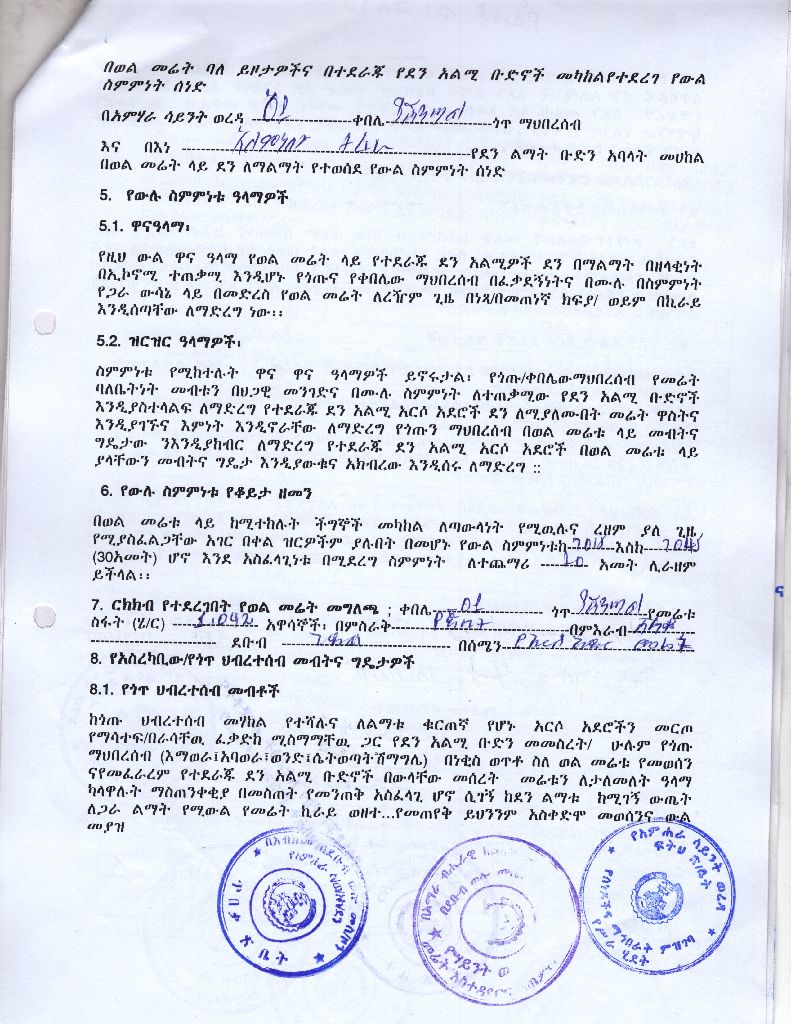 በወል መሬት ባለ ይዞታዎችና በተደራጁ የደን አልሚ ቡድኖች መካከልየተደረገ የውል
ስምምነት ሰነድ
በአምሃራ ሳይንት ወረዳ 01 ቀበሌ ጎጥ ማህበረሰብ
እና በእነ የደን ልማት ቡድን አባላት መሀከል
በወል መሬት ላይ ደን ለማልማት የተወሰደ የውል ስምምነት ሰነድ
5. የውሉ ስምምነቱ ዓላማዎች
5.1. ዋናዓላማ፡
የዚህ ውል ዋና ዓላማ የወል መሬት ላይ የተደራጁ ደን አልሚዎች ደን በማልማት በዘላቂነት
በኢኮኖሚ ተጠቃሚ እንዲሆኑ የጎጡና የቀበሌው ማህበረሰብ በፈቃደኝነትና በሙሉ በስምምነት
የጋራ ውሳኔ ላይ በመድረስ የወል መሬት ለረዥም ጊዜ በነጻ/በመጠነኛ ክፍያ/ ወይም በኪራይ
እንዲሰጣቸው ለማድረግ ነው፡፡
5.2. ዝርዝር ዓላማዎች፡
ስምምነቱ የሚከተሉት ዋና ዋና ዓላማዎች ይኖሩታል፡ የጎጡ/ቀበሌውማህበረሰብ የመሬት
ባለቤትነት መብቱን በህጋዊ መንገድና በሙሉ ስምምነት ለተጠቃሚው የደን አልሚ ቡድኖች
እንዲያስተላልፍ ለማድረግ የተደራጁ ደን አልሚ አርሶ አደሮች ደን ለሚያለሙበት መሬት ዋስትና
እንዲያገኙና እምነት እንዲኖራቸው ለማድረግ የጎጡን ማህበረሰብ በወል መሬቱ ላይ መብትና
ግዴታው ንእንዲያከብር ለማድረግ የተደራጁ ደን አልሚ አርሶ አደሮች በወል መሬቱ ላይ
ያላቸውን መብትና ግዴታ እንዲያውቁና አክብረው እንዲሰሩ ለማድረግ ::
6. የውሉ ስምምነቱ የቆይታ ዘመን
በወል መሬቱ ላይ ከሚተከሉት ችግኞች መካከል ለጣውላነት የሚዉሉና ረዘም ያለ ጊዜ
የሚያስፈልጋቸው አገር በቀል ዝርዎችም ያሉበት በመሆኑ የውል ስምምነቱከ 2015 እስከ 2045
(30አመት) ሆኖ እንደ አስፈላጊነቱ በሚደረግ ስምምነት ለተጨማሪ 10 አመት ሊራዘም
ይችላል፡፡
7. ርክክብ የተደረገበት የወል መሬት መግለጫ ; ቀበሌ 01 ጎጥ የመሬቱ
ስፋት (ሄ/ር) 1.042 አዋሳኞች፡ በምስራቅ በምእራብ
ደቡብ በሰሜን
8. የአስረካቢው/የጎጥ ህብረተሰብ መብትና ግዴታዎች
8.1. የጎጥ ህብረተሰብ መብቶች
ከጎጡ ህብረተሰብ መሃከል የተሻሉና ለልማቱ ቁርጠኛ የሆኑ አርሶ አደሮችን መርጦ
የማሳተፍ/በራሳቸዉ ፈቃድከ ሚስማማቸዉ ጋር የደን አልሚ ቡድን መመስረት/ ሁሉም የጎጡ
ማህበረሰብ (እማወራ፤አባወራ፤ወንድ፤ሴትወጣትሽማግሌ) በነቂስ ወጥቶ ስለ ወል መሬቱ የመወሰን
ናየመፈራረም የተደራጁ ደን አልሚ ቡድኖች በውላቸው መሰረት መሬቱን ለታለመለት ዓላማ
ካላዋሉት ማስጠንቀቂያ በመስጠት የመንጠቅ አስፈላጊ ሆኖ ሲገኝ ከደን ልማቱ ከሚገኝ ውጤት
ለጋራ ልማት የሚውል የመሬት ኪራይ ወዘተ...የመጠየቅ ይህንንም አስቀድሞ መወሰንና ውል
መያዝ
የአምሐራ ሳይንት ወረዳ
ፍትህ ጽ/ቤት
ጽ ቤት